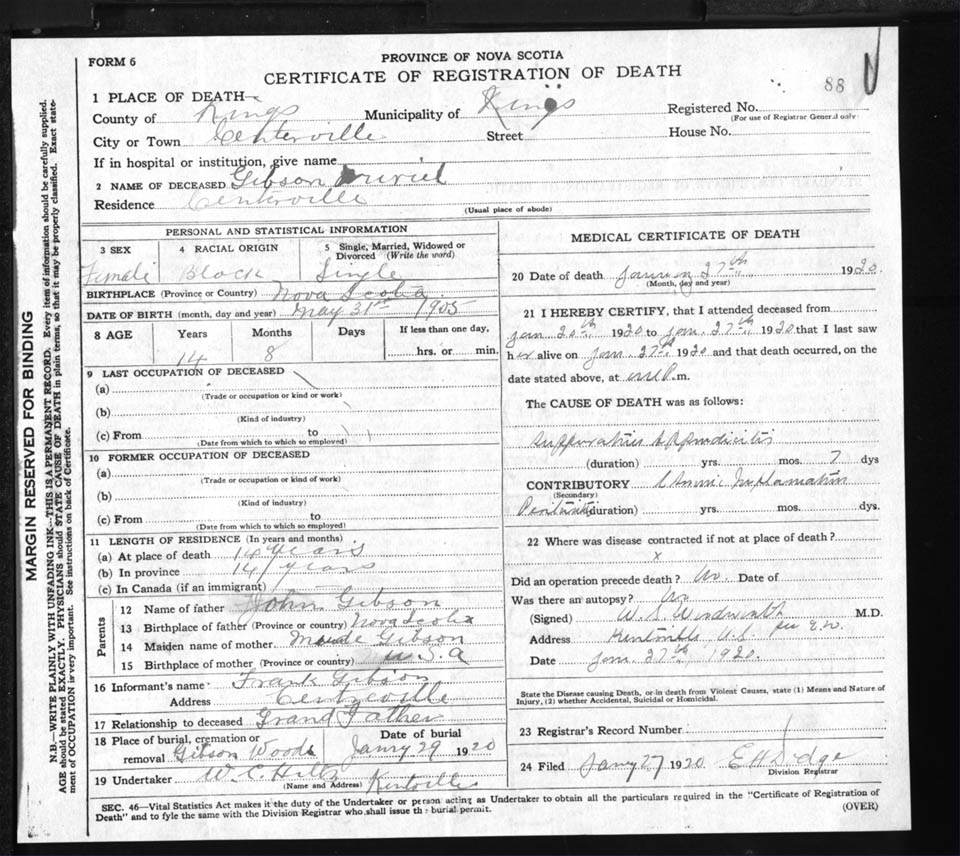 FORM 6
PROVINCE OF NOVA SCOTIA
CERTIFICATE OF REGISTRATION OF DEATH
88
1 PLACE OF DEATH—
County of Kings Municipality of Kings Registered No.
(For use of Registrar General only)
City or Town Centerville Street House No.
If in hospital or institution, give name
2 NAME OF DECEASED Gibson Muriel
Residence Centerville
(Usual place of abode)
PERSONAL AND STATISTICAL INFORMATION
3 SEX 4 RACIAL ORIGIN 5 Single, Married, Widowed or Divorced (Write the word)
Female Black Single
BIRTHPLACE (Province or Country) Nova Scotia
DATE OF BIRTH (month, day and year) May 31st 1905
8 AGE Years Months Days If less than one day,
14 8 hrs. or min.
9 LAST OCCUPATION OF DECEASED
(a)
(Trade or occupation or kind or work)
(b)
(Kind of industry)
(c) From to
(Date from which to which so employed)
10 FORMER OCCUPATION OF DECEASED
(a)
(Trade or occupation or kind of work)
(b)
(Kind of industry)
(c) From to
(Date from which to which so employed)
11 LENGTH OF RESIDENCE (In years and months)
(a) At place of death 14 years
(b) In province 14 years
(c) In Canada (if an immigrant)
Parents
12 Name of father John Gibson
13 Birthplace of father (Province or country) Nova Scotia
14 Maiden name of mother Maude Gibson
15 Birthplace of mother (Province or country) U.S.A
16 Informant's name Frank Gibson
Address Centreville
17 Relationship to deceased Grand Father
18 Place of burial, cremation or removal Gibson Woods Date of burial Janry 29 1920
19 Undertaker W. C. Hiltz Kentville
(Name and Address)
MEDICAL CERTIFICATE OF DEATH
20 Date of death January 27th 1920.
(Month, day and year)
21 I HEREBY CERTIFY, that I attended deceased from
Jan 20th 1920 to Jan. 27th 1920 that I last saw
her alive on Jan. 27th 1920 and that death occurred, on the
date stated above, at one P.m.
The CAUSE OF DEATH was as follows:
Suppurative Appendicitis
(duration) yrs. mos. 7 dys
CONTRIBUTORY Chronic Inflamation
(Secondary)
Peritonitis (duration) yrs. mos. dys.
22 Where was disease contracted if not at place of death?
x
Did an operation precede death? No. Date of
Was there an autopsy? No
(Signed) M.D.
Address
Date Jan 27th, 1920.
State the Disease causing Death, or in death from Violent Causes, state (1) Means and Nature of Injury, (2) whether Accidental, Suicidal or Homicidal.
23 Registrar's Record Number
24 Filed Janry 27 1920 E H Dodge
Division Registrar
SEC. 46—Vital Statistics Act makes it the duty of the Undertaker or person acting as Undertaker to obtain all the particulars required in the "Certificate of Registration of
Death" and to fyle the same with the Division Registrar who shall issue the burial permit. (OVER)
MARGIN RESERVED FOR BINDING
N.B.—WRITE PLAINLY WITH UNFADING INK—THIS IS A PERMANENT RECORD. Every item of information should be carefully supplied.
AGE should be stated EXACTLY. PHYSICIANS should STATE CAUSE OF DEATH in plain terms, so that it may be properly classified. Exact statement of OCCUPATION is very important. See instructions on back of Certificate.